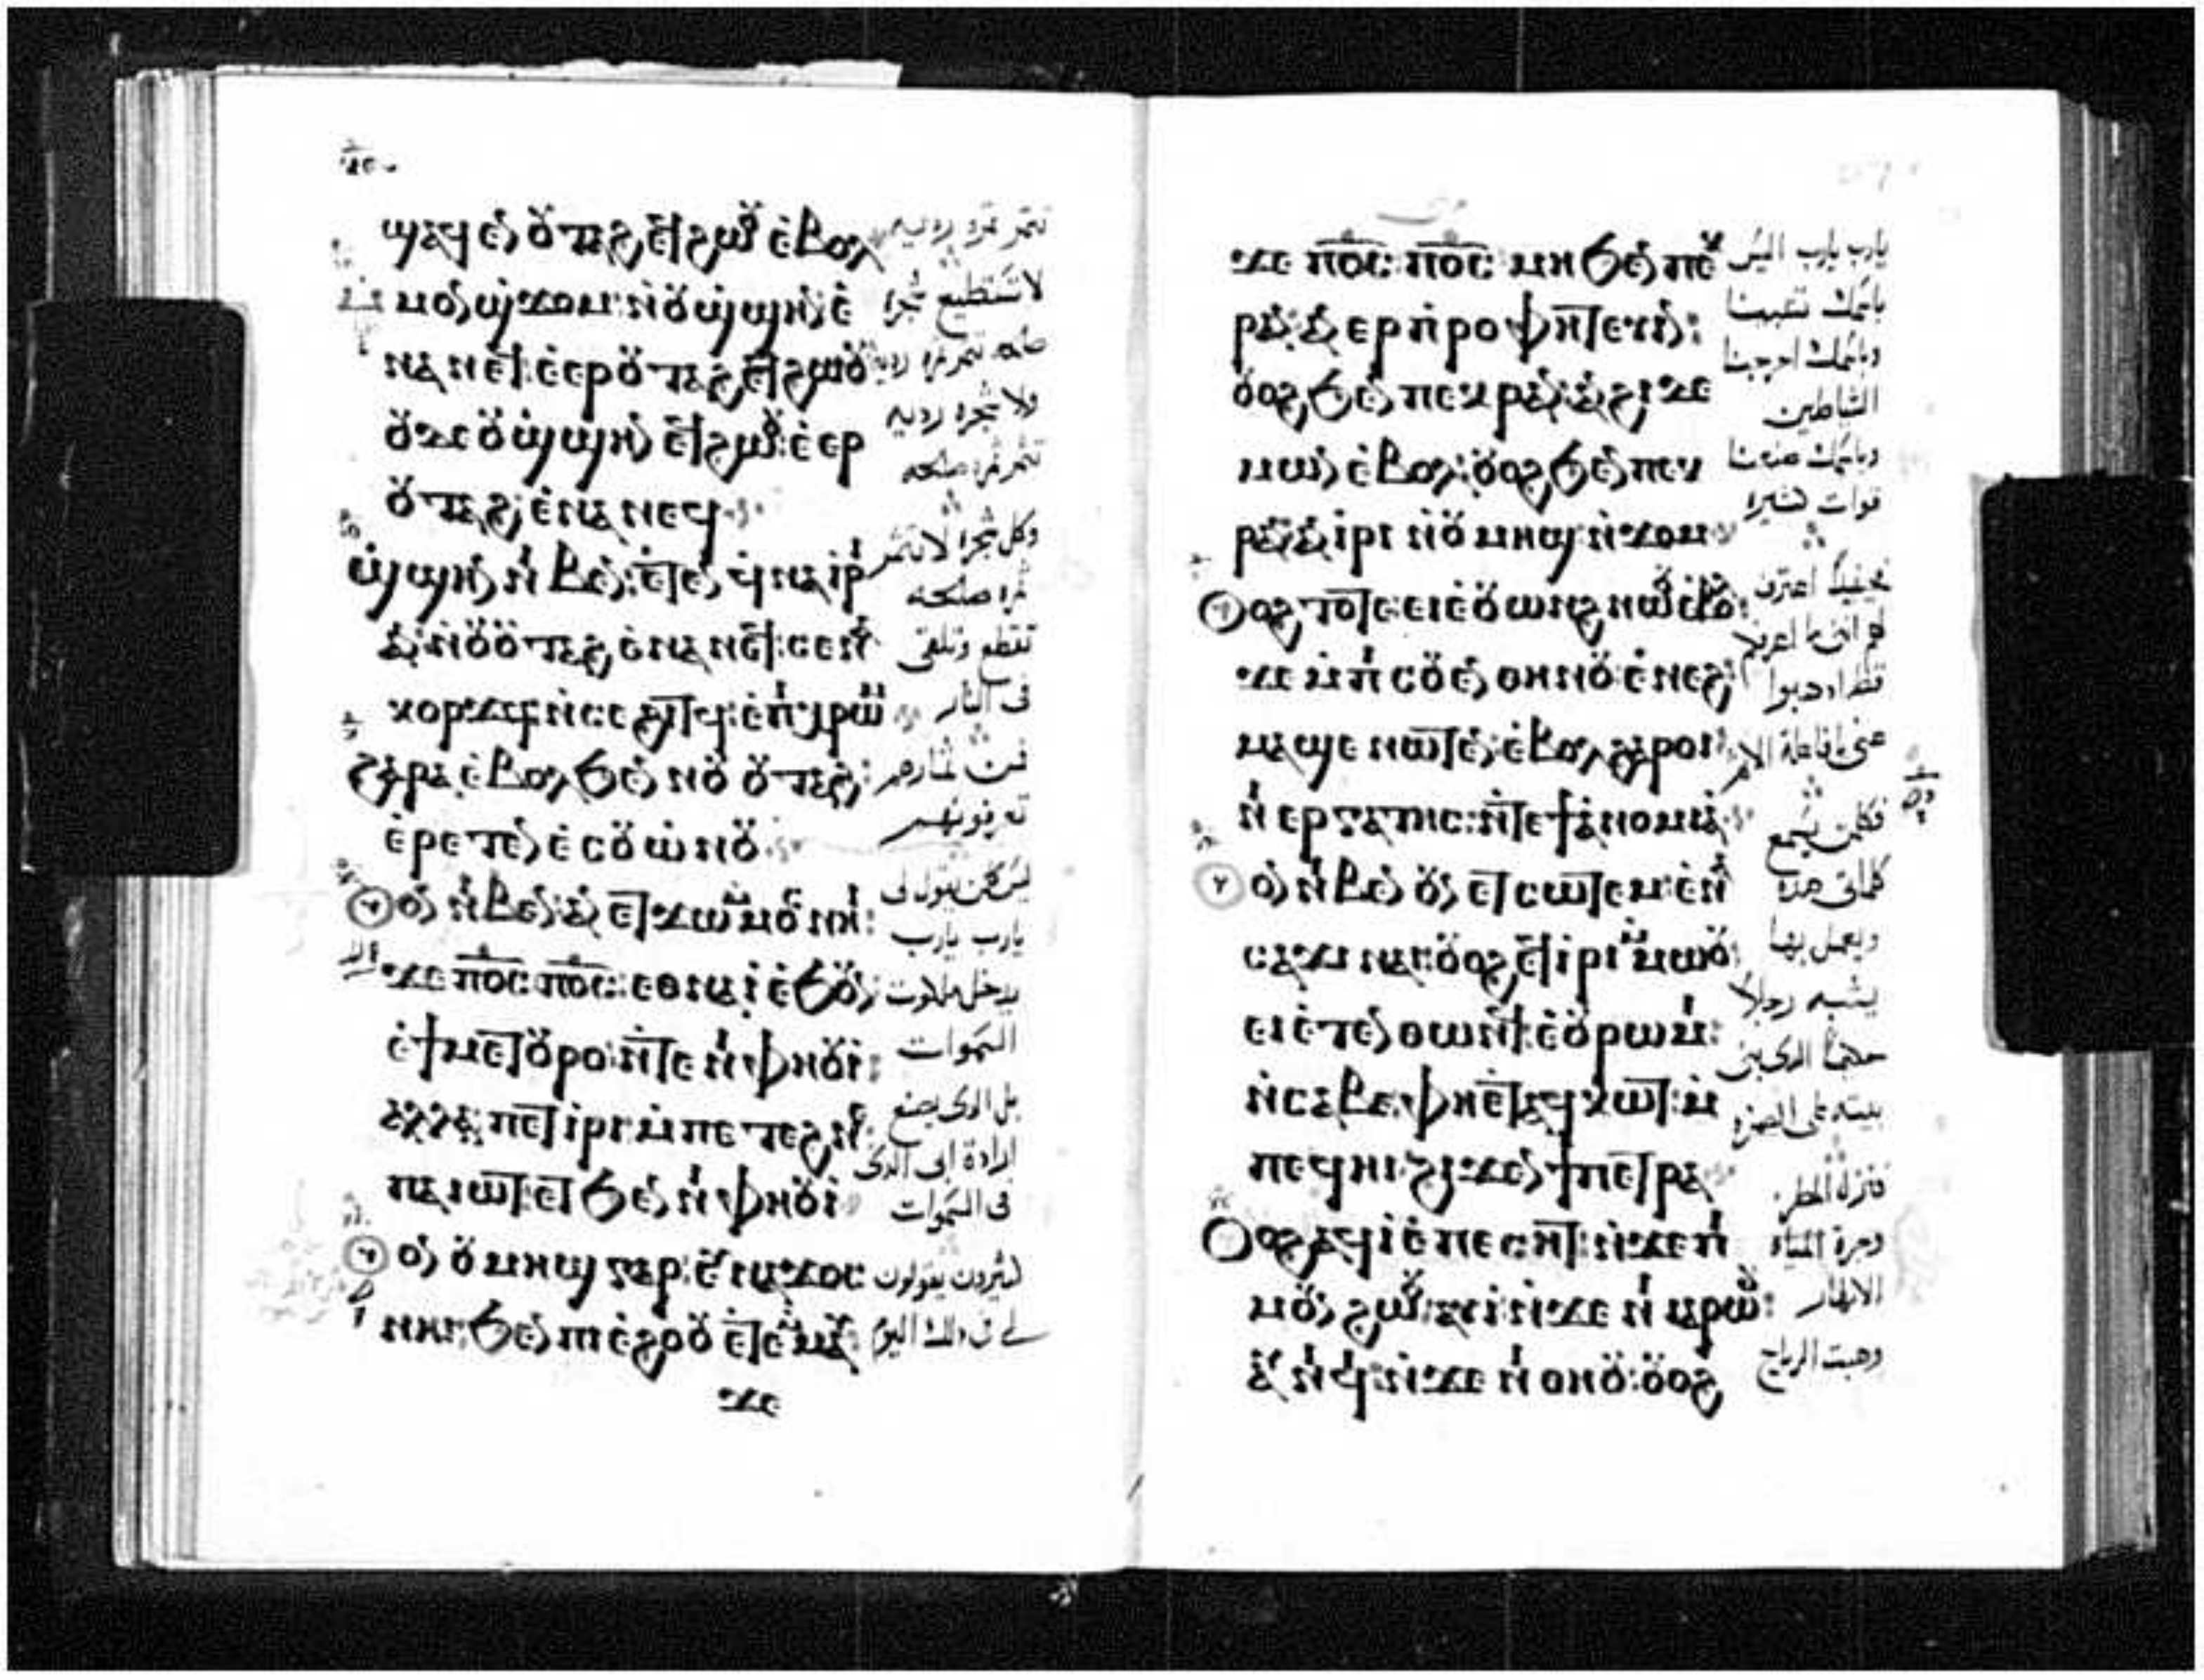 ϣⲁϥⲉⲛ ⲟⲩⲧⲁϩ ⲉϥϩⲱⲟⲩ ⲉⲃⲟⲗ
ⲙⲙⲟⲛ ϣϫⲟⲙ ⲛⲟⲩϣϣⲏⲛ ⲉ
ⲛⲁⲛⲉϥ ⲉⲉⲣⲟⲩⲧⲁϩ ⲉϥϩⲱⲟⲩ
ⲟⲩⲇⲉ ⲟⲩϣϣⲏⲛ ⲉϥϩⲱⲟⲩ ⲉⲉⲣ
ⲟⲩⲧⲁϩ ⲉⲛⲁⲛⲉϥ
ϣϣⲏⲛ ⲛⲓⲃⲉⲛ ⲉⲧⲉⲛϥⲛⲁⲓⲣⲓ
ⲁⲛ ⲛⲟⲩⲟⲩⲧⲁϩ ⲉⲛⲁⲛⲉϥ ⲥⲉⲛⲁ
ⲕⲟⲣϫϥ ⲛⲥⲉϩⲓⲧϥ ⲉⲡⲓⲭⲣⲱⲙ
ϩⲁⲣⲁ ⲉⲃⲟⲗϧⲉⲛ ⲛⲟⲩⲟⲩⲧⲁϩ
ⲉⲣⲉⲧⲉⲛⲉⲥⲟⲩⲱⲛⲟⲩ
ⲟⲩⲟⲛ ⲛⲓⲃⲉⲛ ⲁⲛ ⲉⲧϫⲱ ⲙⲙⲟⲥ ⲛⲏⲓ
ϫⲉ ⲡ̅ⲟ̅ⲥ̅ ⲡ̅ⲟ̅ⲥ̅ ⲉⲑⲛⲁⲓ ⲉϧⲟⲩⲛ
ⲉϯⲙⲉⲧⲟⲩⲣⲟ ⲛⲧⲉ ⲛⲓⲫⲏⲟⲩⲓ
ⲁⲗⲗⲁ ⲡⲉⲧⲓⲣⲓ ⲙⲡⲉⲧⲉϩⲛⲉ
ⲡⲁⲓⲱⲧ ⲉⲧϧⲉⲛ ⲛⲓⲫⲏⲟⲩⲓ
ⲟⲩⲟⲛ ⲟⲩⲙⲏϣ ⲅⲁⲣ ⲉⲩⲛⲁϫⲟⲥ
ⲛⲏⲓ ϧⲉⲛ ⲡⲓⲉϩⲟⲟⲩ ⲉⲧⲉⲙⲙⲁⲩ
ϫⲉ
تثمر ثمره رديه
لا تستطيع شجرة
صالحه تثمر ثمره رديه
ولا شجره رديه
تثمر ثمره صالحه
وكل شجرة لا تثمر
ثمرة صالحه
تقطع وتلقى
فى النار
فمن ثمارهم
تعرفونهم
ليس كلمن يقول لى
يارب يارب
يدخل ملكوت
السموات
بل الذى يصنع
ارادة ابى الذى
فى السموات
كثيرون يقولون
لى فى ذلك اليوم
ϫⲉ ⲡ̅ⲟ̅ⲥ̅ ⲡ̅ⲟ̅ⲥ̅ ⲙⲏ ϧⲉⲛ ⲡⲉⲕ
ⲣⲁⲛ ⲁⲛⲉⲣⲡⲣⲟⲫⲏⲧⲉⲩⲓⲛ
ⲟⲩⲟϩ ϧⲉⲛ ⲡⲉⲕⲣⲁⲛ ⲁⲛϩⲓ ⲇⲉ
ⲙⲱⲛ ⲉⲃⲟⲗ ⲟⲩⲟϩ ϧⲉⲛ ⲡⲉⲕ
ⲣⲁⲛ ⲁⲛⲓⲣⲓ ⲛⲟⲩⲙⲏϣ ⲛϫⲟⲙ
ⲟⲩⲟϩ ⲧⲟⲧⲉ ⲉⲓⲉⲟⲩⲱⲛϩ ⲛⲱⲟⲩ ⲉⲃⲟⲗ
ϫⲉ ⲙⲡⲓⲥⲟⲩⲉⲛ ⲑⲏⲛⲟⲩ ⲉⲛⲉϩ
ⲙⲁϣⲉ ⲛⲱⲧⲉⲛ ⲉⲃⲟⲗϩⲁⲣⲟⲓ
ⲛⲓⲉⲣⲅⲁⲧⲏⲥ ⲛⲧⲉ ϯⲁⲛⲟⲙⲓⲁ
ⲟⲩⲟⲛ ⲛⲓⲃⲉⲛ ⲟⲩⲛ ⲉⲧⲥⲱⲧⲉⲙ ⲉⲛⲁ
ⲥⲁϫⲓ ⲛⲁⲓ ⲟⲩⲟϩ ⲉⲧⲓⲣⲓ ⲙⲙⲱⲟⲩ
ⲉⲓⲉⲧⲉⲛⲑⲱⲛϥ ⲉⲟⲩⲣⲱⲙⲓ
ⲛⲥⲁⲃⲉ ⲫⲏⲉⲧⲁϥⲕⲱⲧ ⲙ
ⲡⲉϥⲏⲓ ϩⲓϫⲉⲛ ϯⲡⲉⲧⲣⲁ
ⲟⲩⲟϩ ⲁϥⲓ ⲉⲡⲉⲥⲏⲧ ⲛϫⲉ ⲡⲓ
ⲙⲟⲩⲛϩⲱⲟⲩ ⲁⲩⲓ ⲛϫⲉ ⲛⲓⲓⲁⲣⲱⲟⲩ
ⲁⲩⲛⲓϥⲓ ⲛϫⲉ ⲛⲓⲑⲏⲟⲩ ⲟⲩⲟϩ
يارب يارب اليس
باسمك تنبينا
وباسمك اخرجنا
الشياطين
وباسمك صنعنا
قوات كثيره
فحينيذ اعترف
لهم انى ما اعرفكم
قط اذهبوا
عنى يافاعلى الاثم
فكلمن يسمع
كلماتى هذه
ويعمل بها
يشبه رجلاً
حكيماً الذى بنى
بيته على الصخره
فنزل المطر
وجرة المياه
الانهار
وهبت الرياح